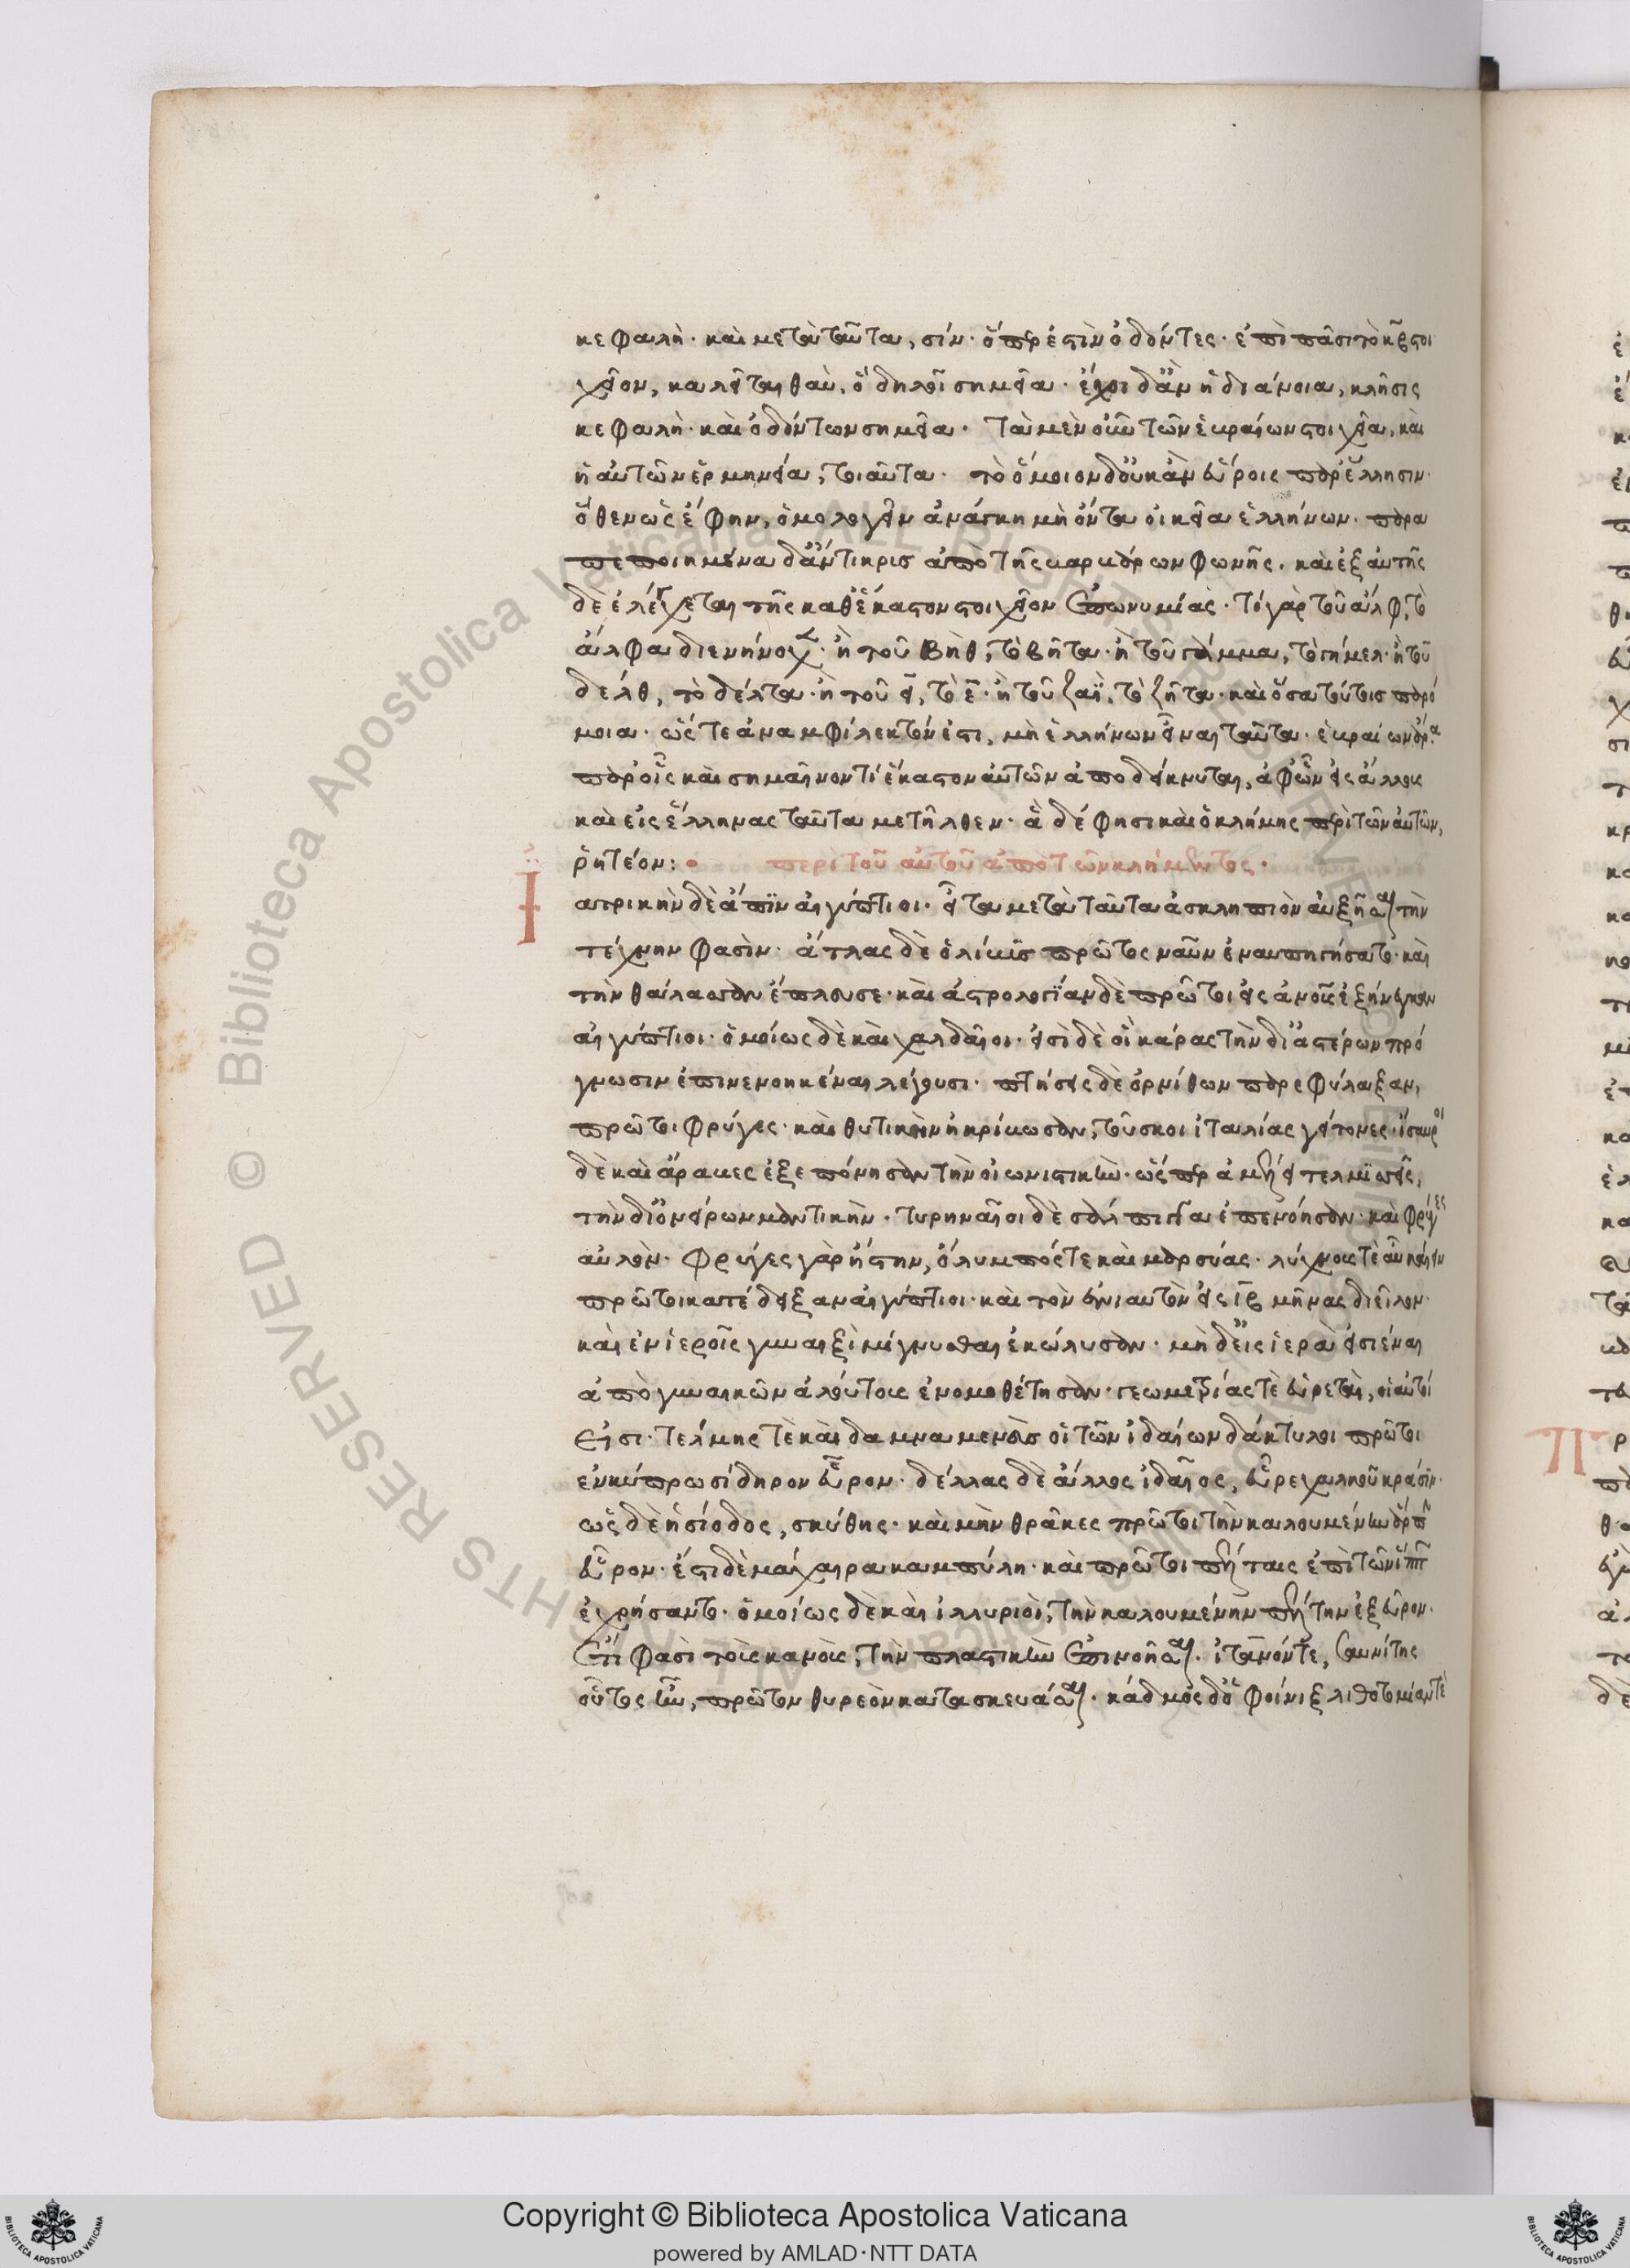 κεφαλή· καὶ μετὰ ταῦτα, σίν· ὅπερ ἐστὶν ὀδόντες· ἐπὶ πᾶσι τὸ κβ στοι
χεῖον, καλεῖται θαὺ, ὃ δηλοῖ σημεῖα· ἔχοι δ᾽ ἂν ἡ διάνοια, κλῆσις
κεφαλὴ· καὶ ὀδόντων σημεῖα· Τὰ μὲν οὖν τῶν ἑβραίων στοιχεῖα, καὶ
ἡ αὐτῶν ἑρμηνεία, τοιαῦτα· τὸ ὅμοιον δ᾽ οὐκ ἂν εὕροις παρ᾽ ἕλλησιν·
ὅθεν ὡς ἔφην, ὁμολογεῖν ἀνάγκη μὴ ὄντα οἰκεῖα ἑλλήνων· παρα
πεποιημένα δ᾽ ἄντικρισ ἀπὸ τῆς βαρβάρων φωνῆς· καὶ ἐξ αὐτῆς
δὲ ἐλέγχεται τῆς καθ᾽ ἕκαστον στοιχεῖον ἐπωνυμίας· Τί γὰρ τοῦ ἀλφ, τὸ
ἄλφα διενήνοχεν· ἢ τοῦ βηθ, τὸ βῆτα· ἢ τοῦ γάμμα, τὸ γίμελ· ἢ τοῦ
δελθ, τὸ δέλτα· ἢ τοῦ ει, τὸ ε· ἢ τοῦ ζαῒ, τὸ ζῆτα· καὶ ὅσα τούτοισ παρό
μοια· ὥστε ἀναμφίλεκτόν ἐστι, μὴ ἑλλήνων εἶναι ταῦτα· ἑβραίων ἄρα
παρ᾽ οἷς καὶ σημαῖνον τί ἕκαστον αὐτῶν ἀποδείκνυται, ἀφ᾽ ὧν εἰς ἄλλους
καὶ εἰς ἕλληνας ταῦτα μετῆλθεν· ἃ δέ φησι καὶ ὁ κλήμης περὶ τῶν αὐτῶν,
ῥητέον: περὶ τοῦ αὐτοῦ ἀπὸ τῶν κλήμεντος·
Ἰατρικὴν δὲ ἄπϊν αἰγύπτιοι· εἶτα μετὰ ταῦτα ἀσκληπιὸν αὐξῆσαι τὴν
τέχνην φασὶν· ἄτλας δὲ ὁ λίβυσ πρῶτος ναῦν ἐναυπηγήσατο· καὶ
τὴν θάλασσαν ἔπλευσε· καὶ ἀστρολογίαν δὲ πρῶτοι εἰς ἀνοῦς ἐξήνεγκαν
αἰγύπτιοι· ὁμοίως δὲ καὶ χαλδαῖοι· εἰσὶ δὲ οἳ κάρας τὴν δι᾽ ἀστέρων πρό
γνωσιν ἐπινενοηκέναι λέγουσι· πτήσεις δὲ ὀρνίθων παρεφύλαξαν,
πρῶτοι φρύγες· καὶ θυτικὴν ἠκρίβωσαν, τοῦσκοι ἰταλίας γείτονες· ἴσαυροι
δὲ καὶ ἄραβες ἐξεπόνησαν τὴν οἰωνιστικὴν· ὥσπερ ἀμέλει τελμϊσεῖς,
τὴν δι᾽ ὀνείρων μαντικήν· Τυρηναῖοι δὲ σάλπιγγα ἐπενόησαν· καὶ φρύγες
αὐλὸν· Φρύγες γὰρ ἤστην, ὄλυμπός τε καὶ μαρσύας· λύχνους τὲ αὖ καίειν
πρῶτοι κατέδειξαν αἰγύπτιοι· καὶ τὸν ἐνιαυτὸν εἰς ιβ μῆνας διεῖλον·
καὶ ἐν ἱεροῖς γυναιξὶ μίγνυσθαι ἐκώλυσαν· μὴ δ᾽ εἰς ἱερὰ εἰσιέναι
ἀπὸ γυναικῶν ἀλούτους ἐνομοθέτησαν· γεωμετρίας τὲ εὑρεταὶ, οἱ αὐτοί
εἰσι· τέλμης τὲ καὶ δαμναμενεὺσ οἱ τῶν ἰδαίων δάκτυλοι πρῶτοι
ἐν κύπρω σίδηρον εὗρον· δέλλας δὲ ἄλλος ἰδαῖος, εὗρε χαλκοῦ κρᾶσϊν·
ὡς δὲ ἡσίοδος, σκύθης· καὶ μὴν θρᾶκες πρῶτοι τὴν καλουμένην ἅρπην
εὗρον· ἔστι δὲ μάχαιρα καμπύλη· καὶ πρῶτοι πέλταις ἐπὶ τῶν ἵππων
ἐχρήσαντο· ὁμοίως δὲ καὶ ἰλλυριοὶ, τὴν καλουμένην πέλτην ἐξεῦρον·
ἔτι φασὶ τοὺς κανοὺς, τὴν πλαστικὴν ἐπινοῆσαι· ἰτανόν τε, σαυνίτης
οὗτος ἦν, πρῶτον θυρεὸν κατασκευάσαι· κάδμος δ᾽ ὁ φοίνιξ λιθοτομίαν τὲ